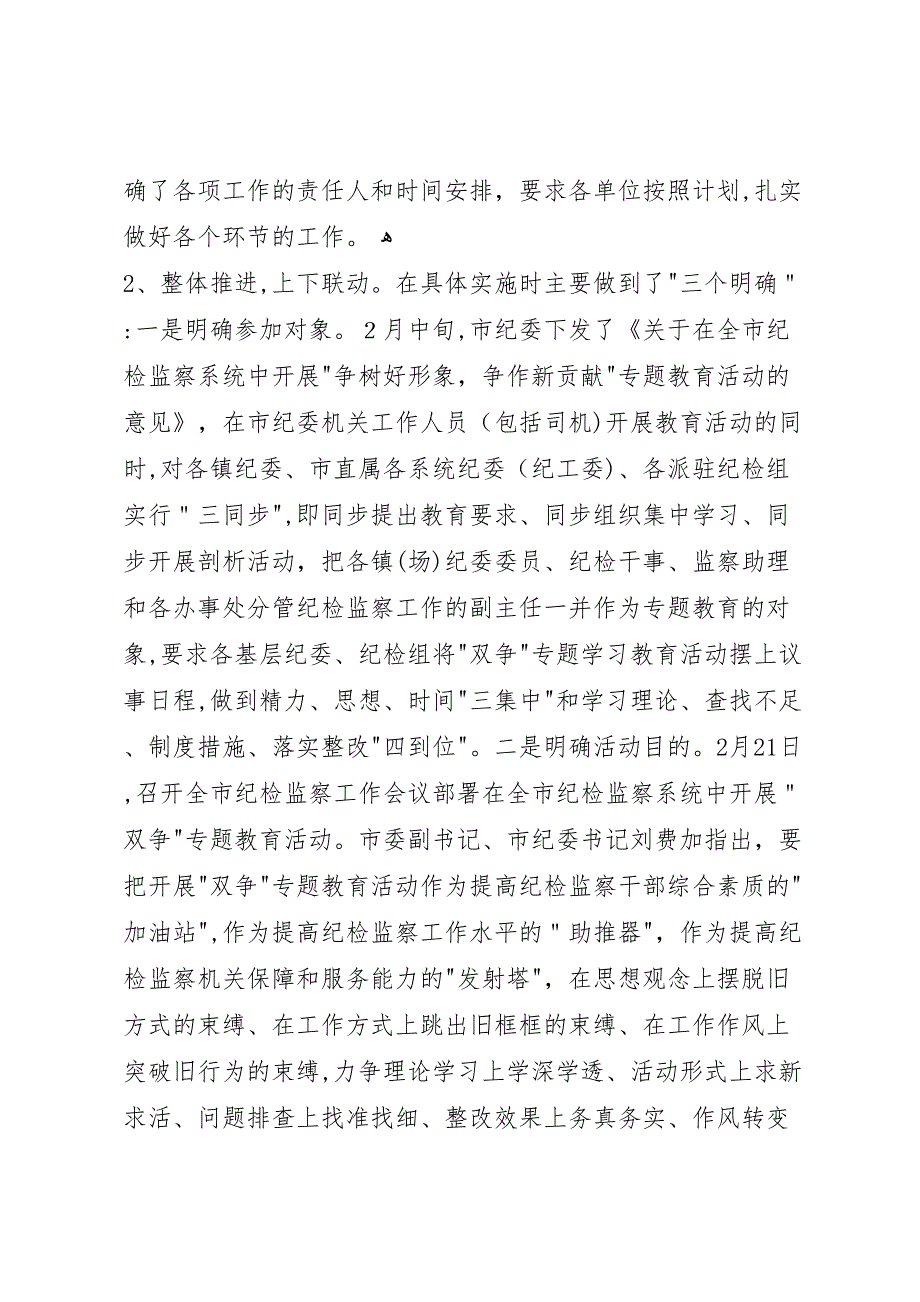 确了各项工作的责任人和时间安排，要求各单位按照计划,扎实
做好各个环节的工作。 ﻫ
2、整体推进,上下联动。在具体实施时主要做到了"三个明确＂
:一是明确参加对象。２月中旬,市纪委下发了《关于在全市纪
检监察系统中开展"争树好形象，争作新贡献"专题教育活动的
意见》，在市纪委机关工作人员（包括司机)开展教育活动的同
时,对各镇纪委、市直属各系统纪委（纪工委)、各派驻纪检组
实行＂三同步",即同步提出教育要求、同步组织集中学习、同
步开展剖析活动，把各镇(场)纪委委员、纪检干事、监察助理
和各办事处分管纪检监察工作的副主任一并作为专题教育的对
象,要求各基层纪委、纪检组将"双争"专题学习教育活动摆上议
事日程,做到精力、思想、时间"三集中"和学习理论、查找不足
、制度措施、落实整改"四到位"。二是明确活动目的。2月21日
,召开全市纪检监察工作会议部署在全市纪检监察系统中开展＂
双争"专题教育活动。市委副书记、市纪委书记刘费加指出，要
把开展"双争"专题教育活动作为提高纪检监察干部综合素质的"
加油站",作为提高纪检监察工作水平的＂助推器"，作为提高纪
检监察机关保障和服务能力的"发射塔"，在思想观念上摆脱旧
方式的束缚、在工作方式上跳出旧框框的束缚、在工作作风上
突破旧行为的束缚,力争理论学习上学深学透、活动形式上求新
求活、问题排查上找准找细、整改效果上务真务实、作风转变